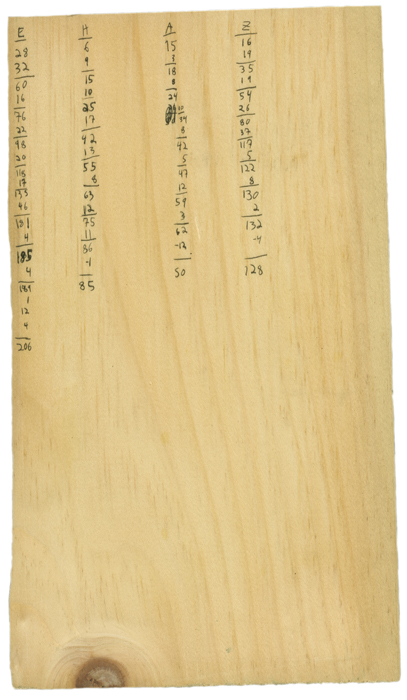 E
28
32
60
16
76
22
98
20
118
17
46
181
4
185
4
189
1
12
4
206
H
6
9
15
10
25
17
42
13
55
8
63
12
75
11
86
-1
85
A
15
3
18
8
24
10
34
8
42
5
47
12
59
3
62
-12
50
Z
16
19
35
19
54
26
80
37
117
5
122
8
130
2
132
-4
128